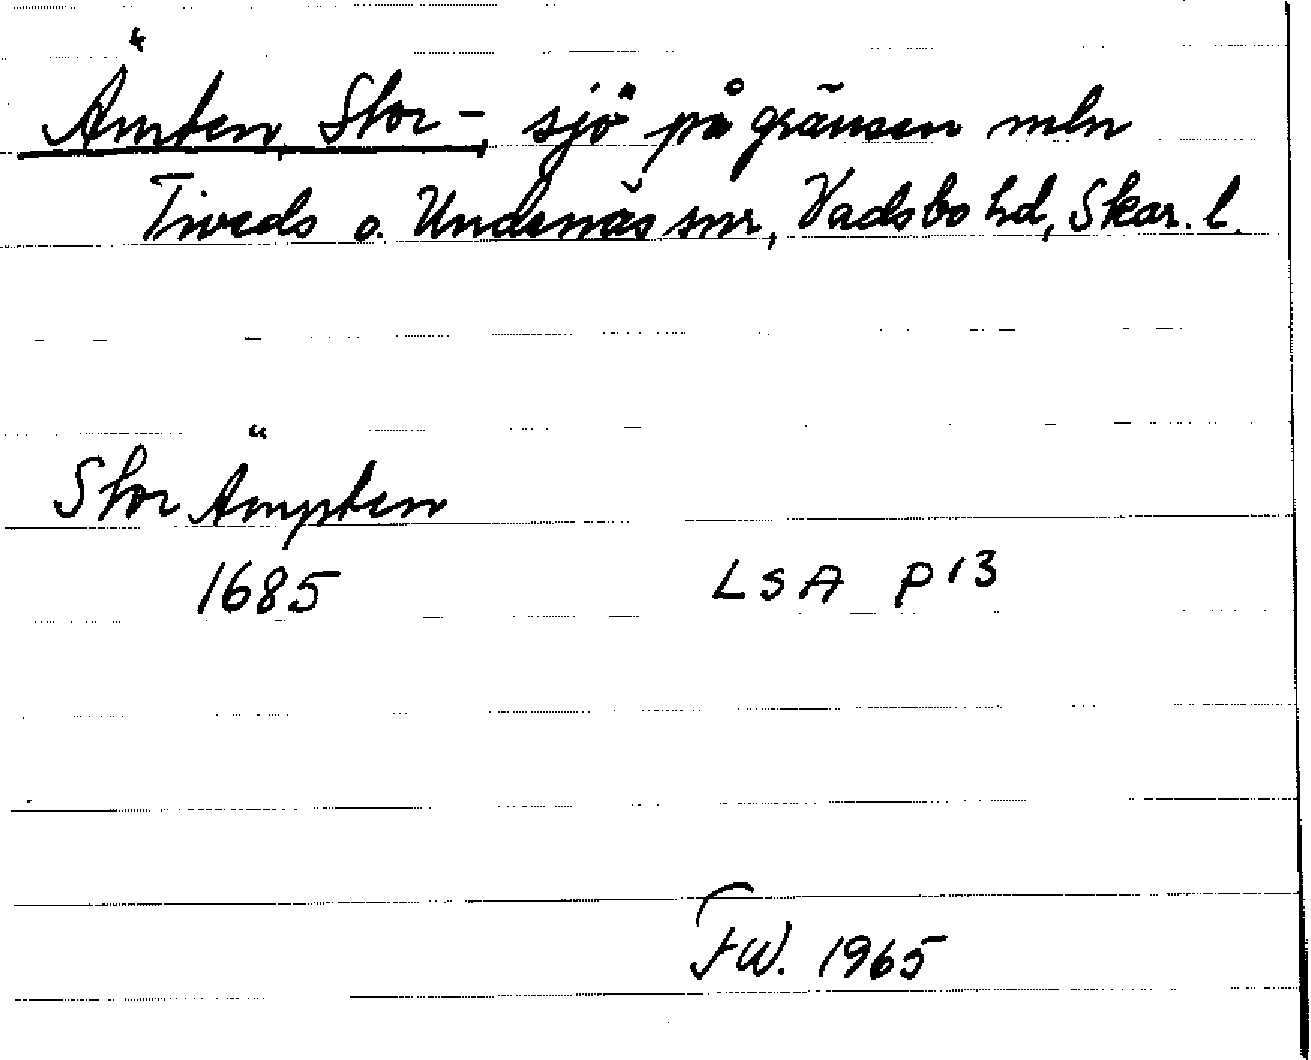 Ämten, Stor-, sjö på gränsen mln
Tiveds o. Undenäs snr, Vadsbo hd, Skar. l.
Stor Ämpten
1685 LSA P 13
FW. 1965